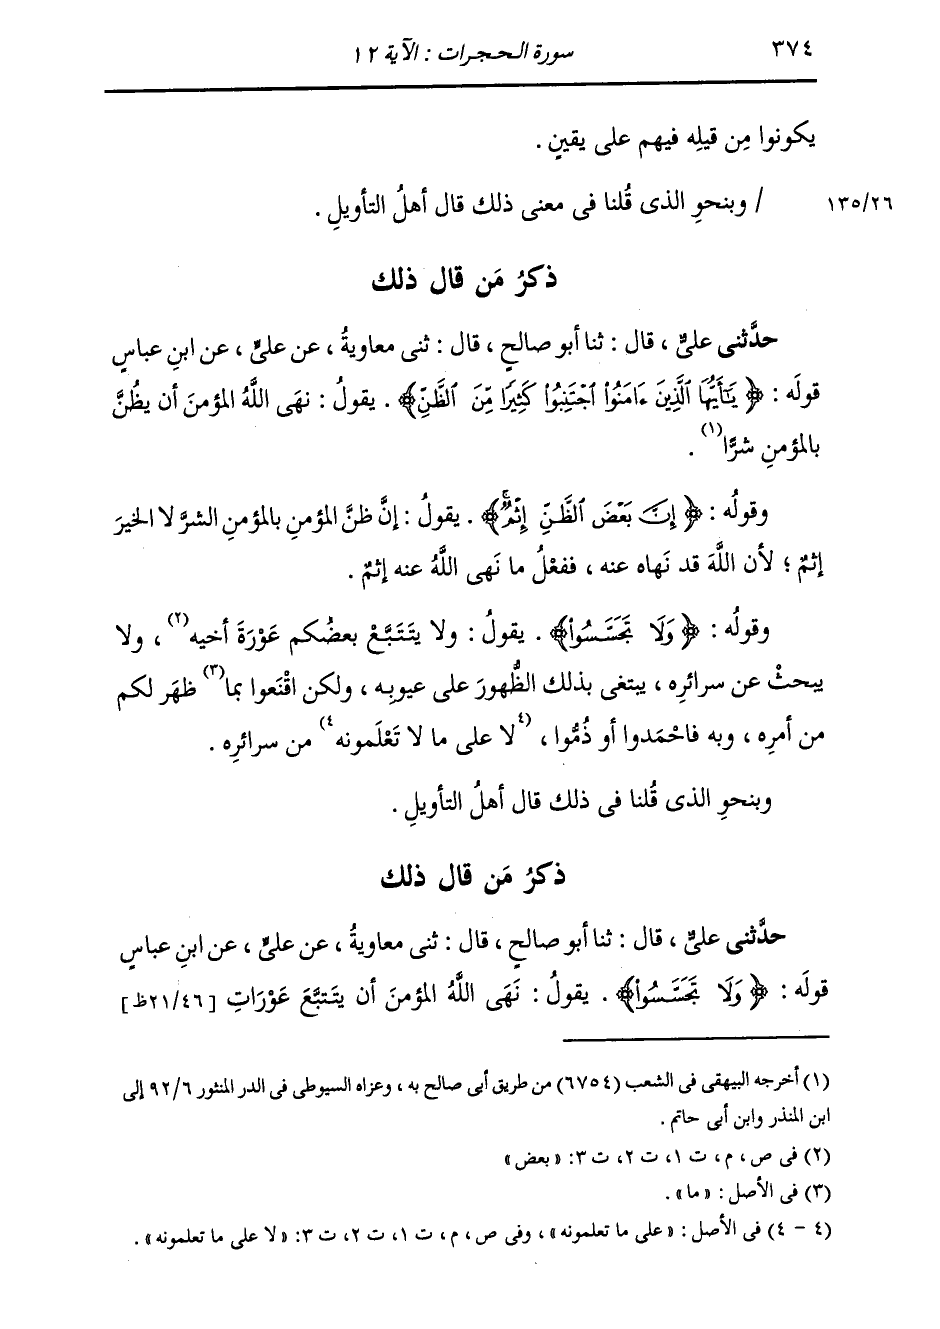 ٣٧٤ سورة الحجرات : الآية ١٢
يكونوا مِن قيلِه فيهم على يقينٍ .
١٣٥/٢٦ / وبنحوِ الذى قُلنا فى معنى ذلك قال أهلُ التأويلِ .
ذكرُ مَن قال ذلك
حدَّثنى علىٌّ ، قال : ثنا أبو صالحٍ ، قال : ثنى معاويةُ ، عن علىٍّ ، عن ابنِ عباسٍ
قولَه : ﴿ يَٰٓأَيُّهَا ٱلَّذِينَ ءَامَنُوا۟ ٱجْتَنِبُوا۟ كَثِيرًا مِّنَ ٱلظَّنِّ ﴾ . يقولُ : نهَى اللَّهُ المؤمنَ أن يظُنَّ
بالمؤمنِ شرًّا(١) .
وقولُه : ﴿ إِنَّ بَعْضَ ٱلظَّنِّ إِثْمٌۖ ﴾ . يقولُ : إنَّ ظنَّ المؤمنِ بالمؤمنِ الشرَّ لا الخيرَ
إثمٌ ؛ لأن اللَّهَ قد نَهاه عنه ، ففعْلُ ما نَهى اللَّهُ عنه إثمٌ .
وقولُه : ﴿ وَلَا تَجَسَّسُوا۟ ﴾ . يقولُ : ولا يتَتَبَّعْ بعضُكم عَوْرَةَ أخيه(٢) ، ولا
يبحثْ عن سرائرِه ، يبتغى بذلك الظُّهورَ على عيوبِه ، ولكن اقْنَعوا بما(٣) ظهَر لكم
من أمرِه ، وبه فاحْمَدوا أو ذُمُّوا ، (٤لا على ما لا تَعْلَمونه٤) من سرائرِه .
وبنحوِ الذى قُلنا فى ذلك قال أهلُ التأويلِ .
ذكرُ مَن قال ذلك
حدَّثنى علىٌّ ، قال : ثنا أبو صالحٍ ، قال : ثنى معاويةُ ، عن علىٍّ ، عن ابنِ عباسٍ
قولَه : ﴿ وَلَا تَجَسَّسُوا۟ ﴾ . يقولُ : نَهَى اللَّهُ المؤمنَ أن يتَتبَّعَ عَوْرَاتِ [٢١/٤٦ظ]
(١) أخرجه البيهقى فى الشعب (٦٧٥٤) من طريق أبى صالح به ، وعزاه السيوطى فى الدر المنثور ٩٢/٦ إلى
ابن المنذر وابن أبى حاتم .
(٢) فى ص ، م ، ت ١، ت ٢، ت ٣: « بعض »
(٣) فى الأصل : « ما » .
(٤ - ٤) فى الأصل : « على ما تعلمونه » ، وفى ص ، م ، ت ١، ت ٢، ت ٣: « لا على ما تعلمونه » .